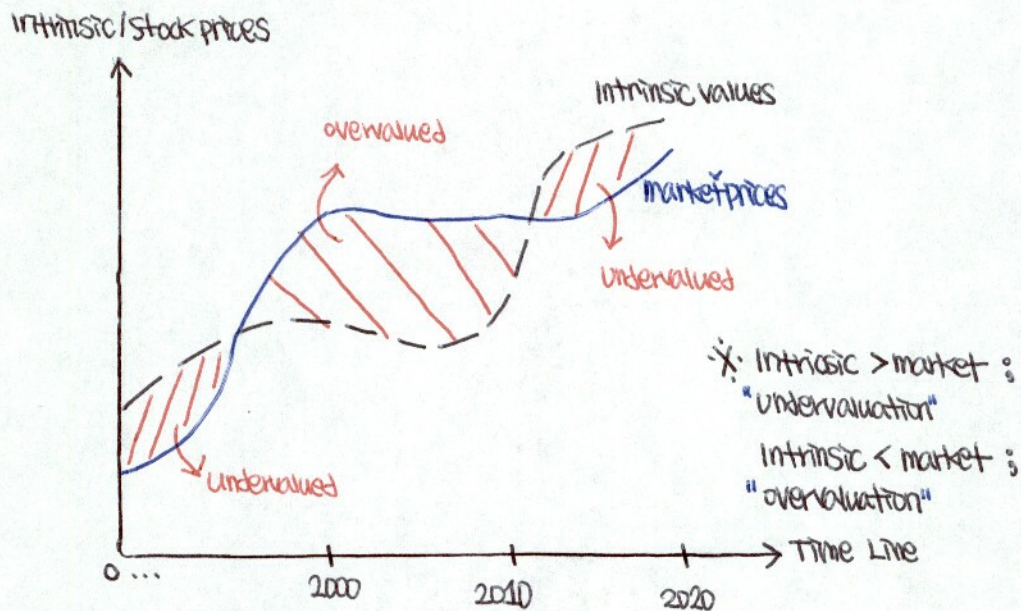 Intrinsic/Stock prices
Intrinsic values
overvalued
market prices
undervalued
※ Intriosic > market ;
"undervaluation"
Intrinsic < market ;
"overvaluation"
undervalued
Time Line
0...
2000
2010
2020